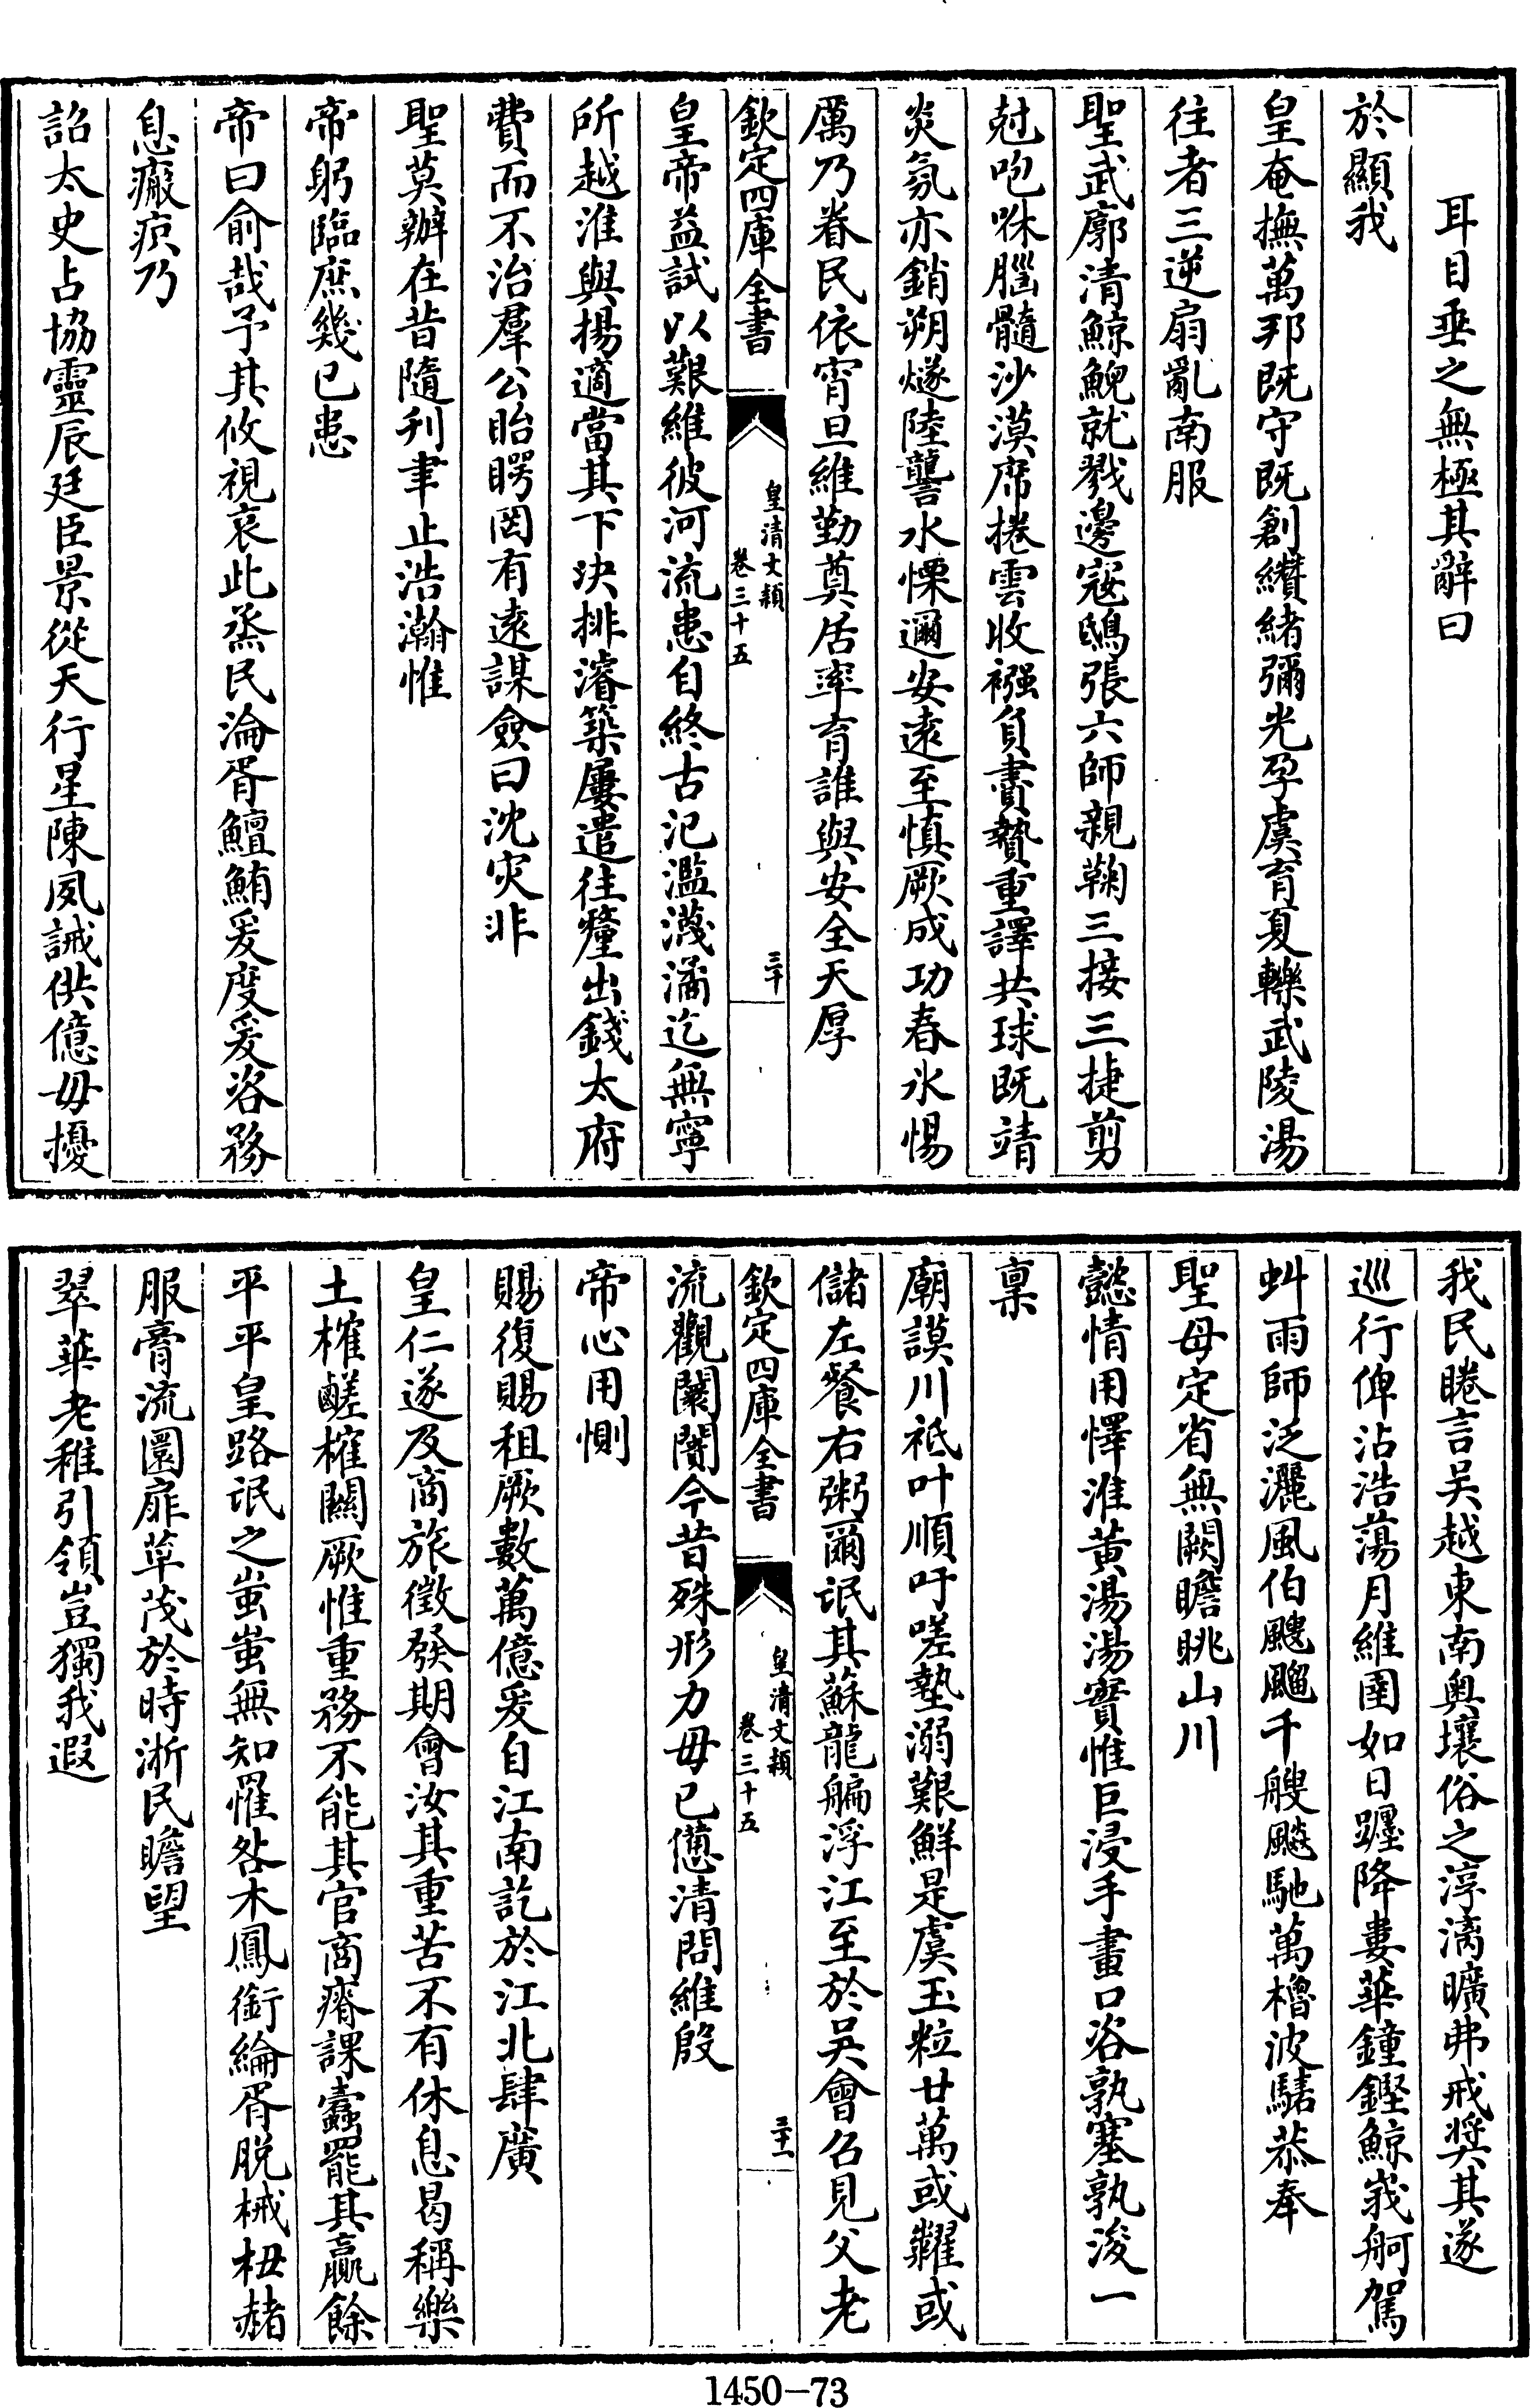 耳目垂之無極其辭曰
於顯我
皇奄撫萬邦既守既創纘緒彌光孕虞育夏轢武陵湯
往者三逆扇亂南服
聖武廓清鯨鯢就戮邊寇鴟張六師親鞠三接三捷剪
尅咆咻腦髓沙漠席捲雲收襁負賮贄重譯共球既靖
炎氛亦銷朔燧陸讋水慄邇安遠至慎厥成功春氷惕
厲乃眷民依宵旦維勤奠居率育誰與安全天厚
欽定四庫全書
皇清文穎
卷三十五
三十
皇帝益試以艱維彼河流患自終古氾濫濊潏迄無寧
所越淮與揚適當其下決排濬築屢遣往釐出錢太府
費而不治羣公眙睯罔有遠謀僉曰沈灾非
聖莫辦在昔隨刋聿止浩瀚惟
帝躬臨庶幾已患
帝曰俞哉予其攸視哀此烝民淪胥鱣鮪爰度爰咨務
息瘢痕乃
詔太史占協靈辰廷臣景從天行星陳夙誡供億毋擾
我民睠言吳越東南奥壤俗之淳漓曠弗戒奬其遂
巡行俾沾浩蕩月維圉如日躔降婁華鐘鏗鯨峩舸駕
虯雨師泛灑風伯颼飀千艘飈馳萬櫓波驕恭奉
聖母定省無闕瞻眺山川
懿情用懌淮黄湯湯實惟巨浸手畫口咨孰塞孰浚一
禀
廟謨川祗叶順吁嗟墊溺艱鮮是虞玉粒廿萬或糶或
儲左餐右粥爾氓其蘇龍艑浮江至於吳會召見父老
欽定四庫全書
皇清文穎
卷三十五
三十一
流觀闤闠今昔殊形力毋已憊清問維殷
帝心用惻
賜復賜租厥數萬億爰自江南訖於江北肆廣
皇仁遂及商旅徵發期會汝其重苦不有休息曷稱樂
土榷鹺榷關厥惟重務不能其官商瘠課蠧罷其贏餘
平平皇路氓之蚩蚩無知罹咎木鳳銜綸胥脱械杻赭
服膏流圜扉草茂於時淅民瞻望
翠華老稚引領豈獨我遐
1450-73